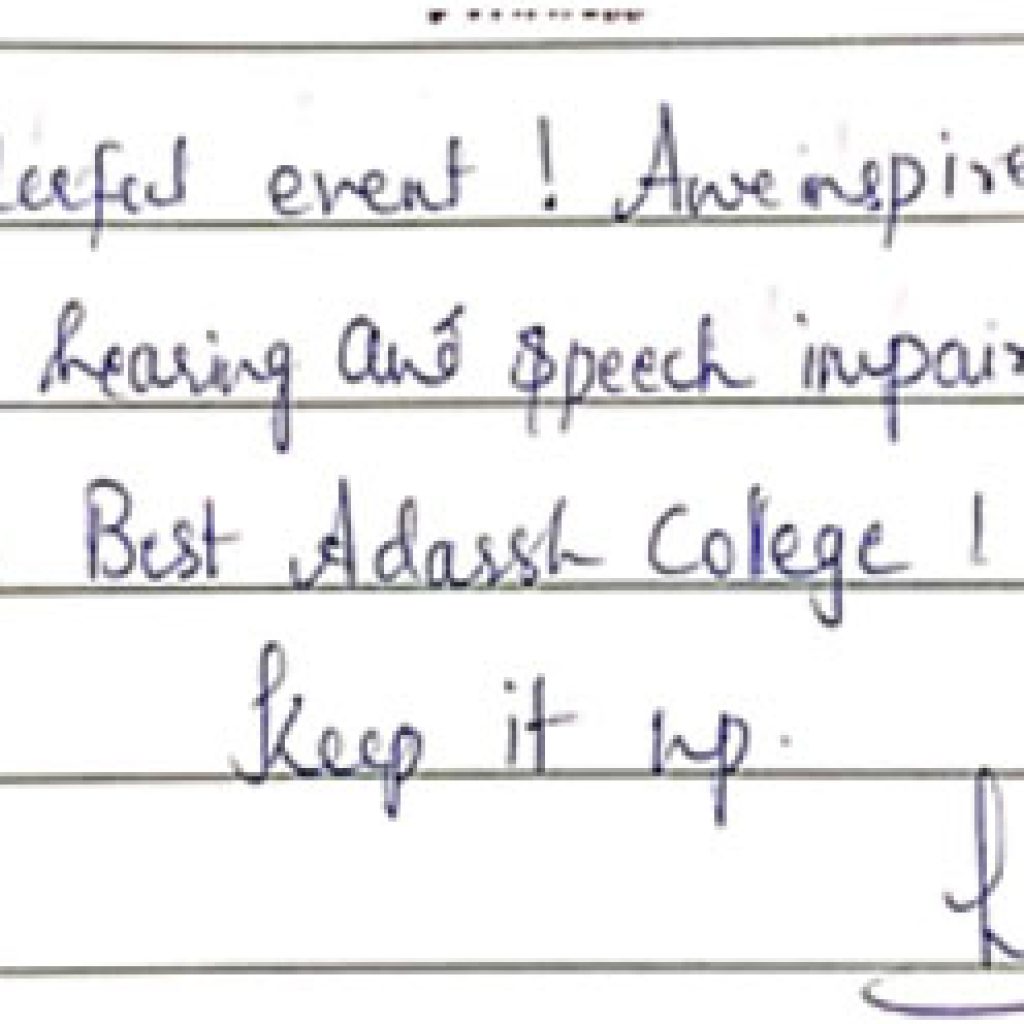 erful event ! Awe inspire
hearing and speech impair
Best Adarsh Colege !
Keep it up.